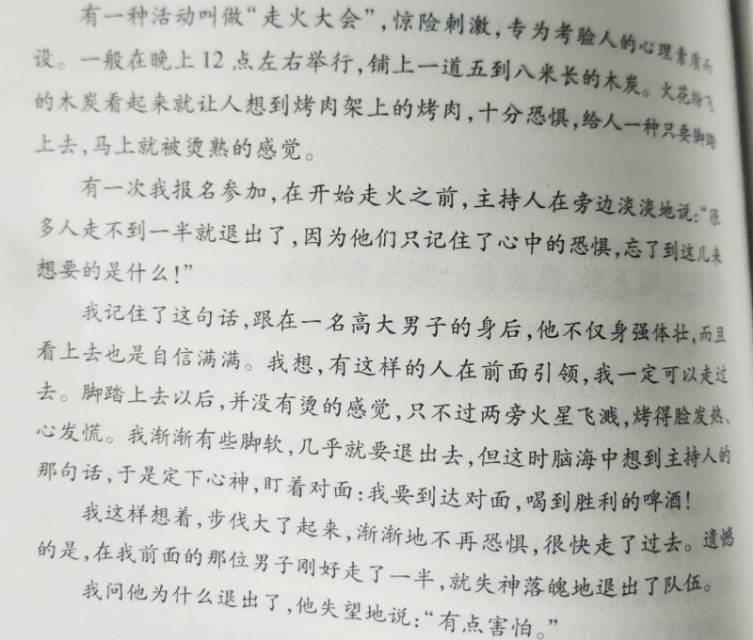 有一种活动叫做“走火大会”,惊险刺激,专为考验人的心理素质而
设。一般在晚上12点左右举行,铺上一道五到八米长的木炭。火花纷飞
的木炭看起来就让人想到烤肉架上的烤肉,十分恐惧,给人一种只要脚踏
上去,马上就被烫熟的感觉。
有一次我报名参加,在开始走火之前,主持人在旁边淡淡地说:“很
多人走不到一半就退出了,因为他们只记住了心中的恐惧,忘了到这儿来
想要的是什么!”
我记住了这句话,跟在一名高大男子的身后,他不仅身强体壮,而且
看上去也是自信满满。我想,有这样的人在前面引领,我一定可以走过
去。脚踏上去以后,并没有烫的感觉,只不过两旁火星飞溅,烤得脸发热、
心发慌。我渐渐有些脚软,几乎就要退出去,但这时脑海中想到主持人的
那句话,于是定下心神,盯着对面:我要到达对面,喝到胜利的啤酒!
我这样想着,步伐大了起来,渐渐地不再恐惧,很快走了过去。遗憾
的是,在我前面的那位男子刚好走了一半,就失神落魄地退出了队伍。
我问他为什么退出了,他失望地说:“有点害怕。”